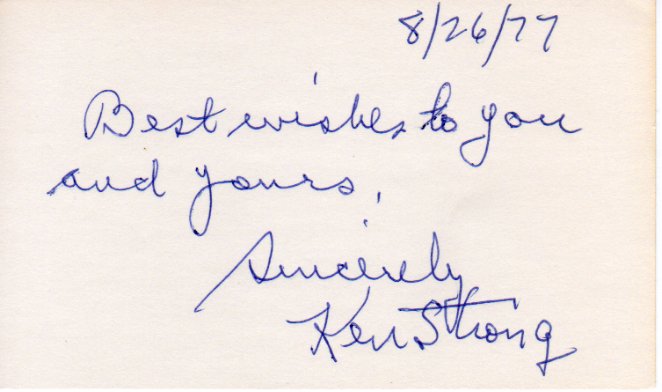 8/26/77
Best wishes to you
and yours,
Sincerely
Ken Strong